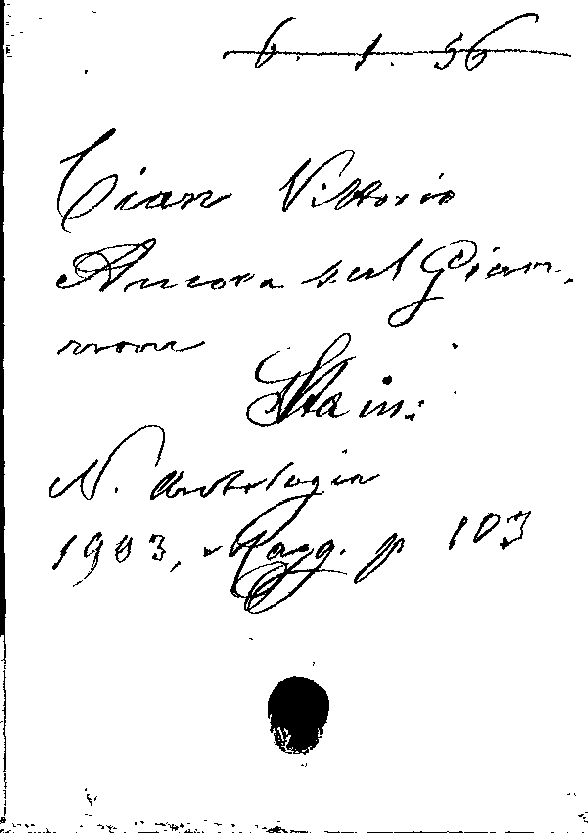 6. 1. 56
Cian Vittorio
Ancora sul Gian-
nnone
Stain:
N. Antologia
1903, Magg. p 103